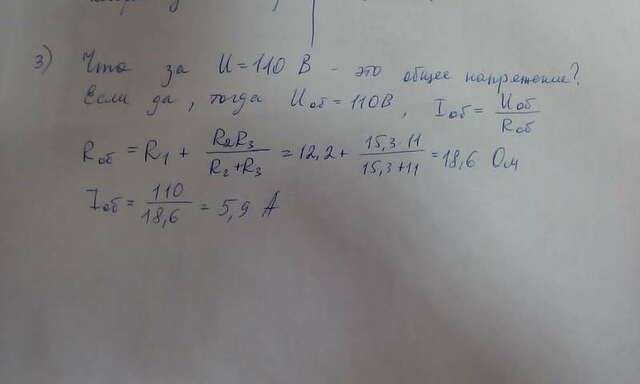 3) Что за U = 110 В - это общее напряжение?
Если да, тогда Uоб = 110В, Iоб = Uоб / Rоб
Rоб = R1 + R2R3 / R2+R3 = 12,2 + 15,3·11 / 15,3+11 = 18,6 Ом
Iоб = 110 / 18,6 = 5,9 А